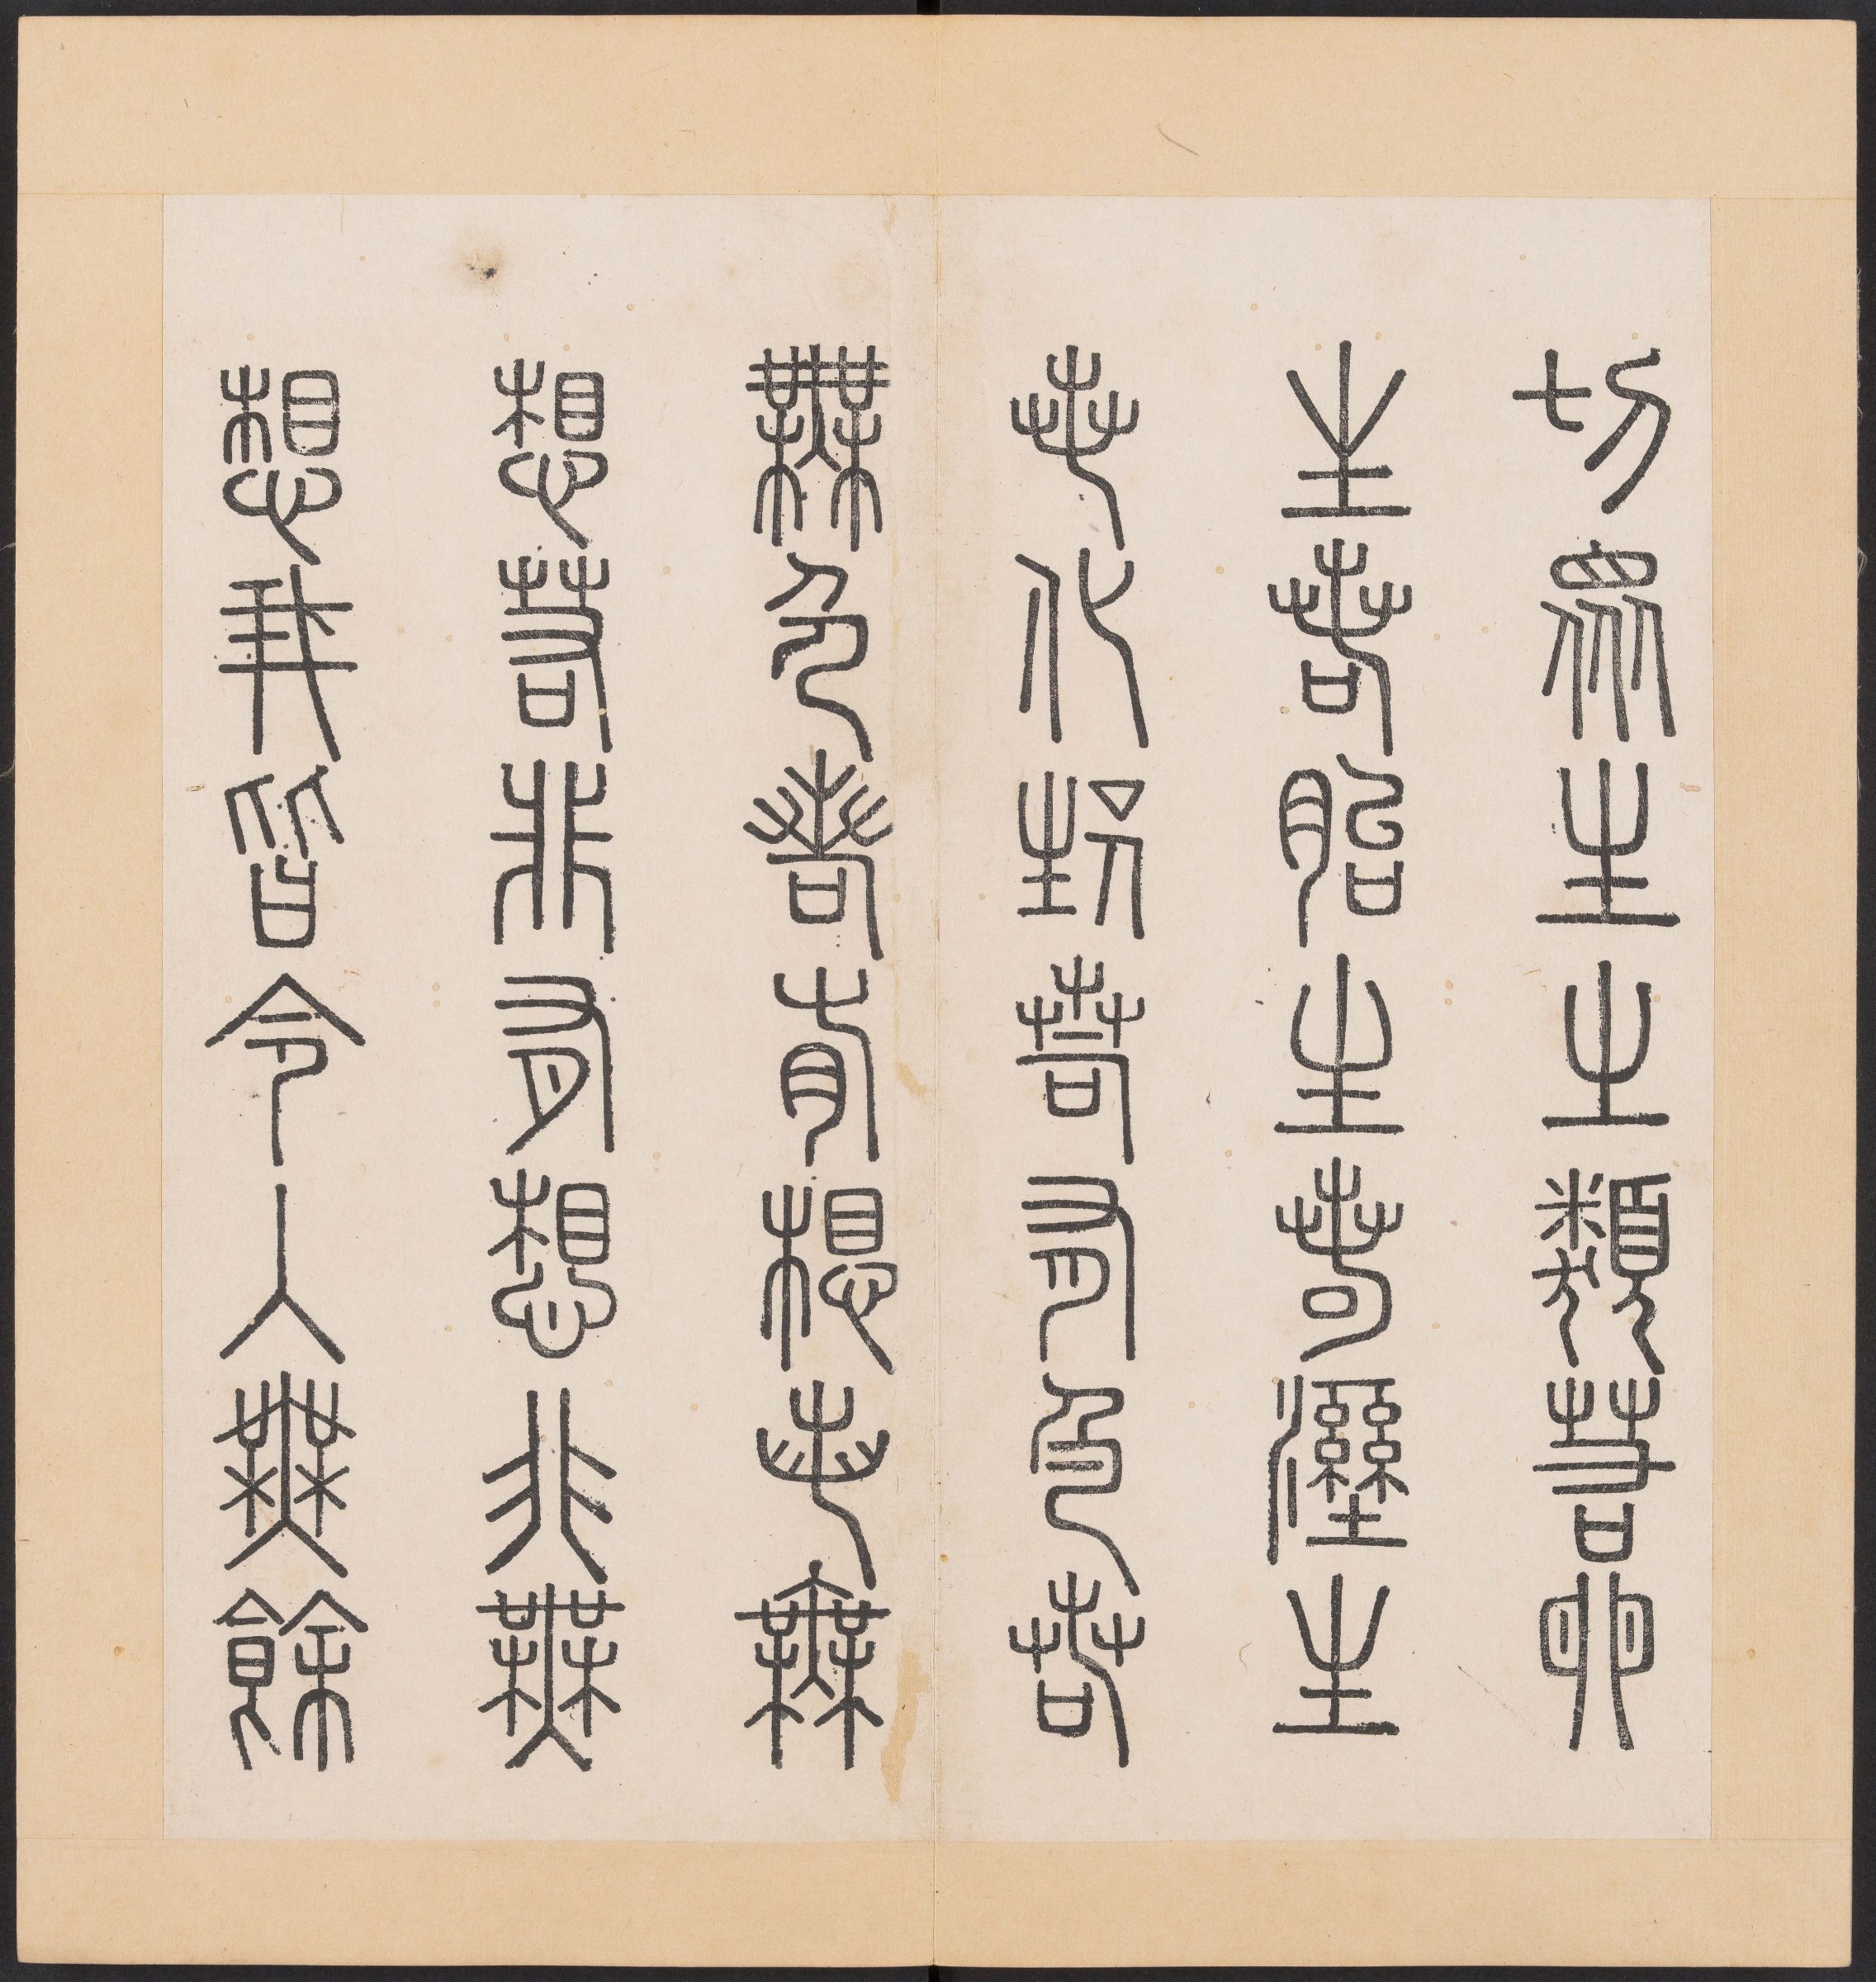 切眾生之類若卵
生若胎生若濕生
若化生若有色若
無色若有想若無
想若非有想非無
想我皆令入無餘